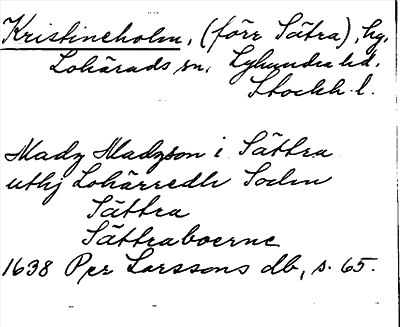 Kristineholm, (förr Sätra), hg,
Lohärads sn, Lyhundra hd.
Stockh. l.
Madz Madzson i Sättra
uthj Lohärredh Sochn
Sättra
Sättraboerne
1638 Per Larssons db, s. 65.